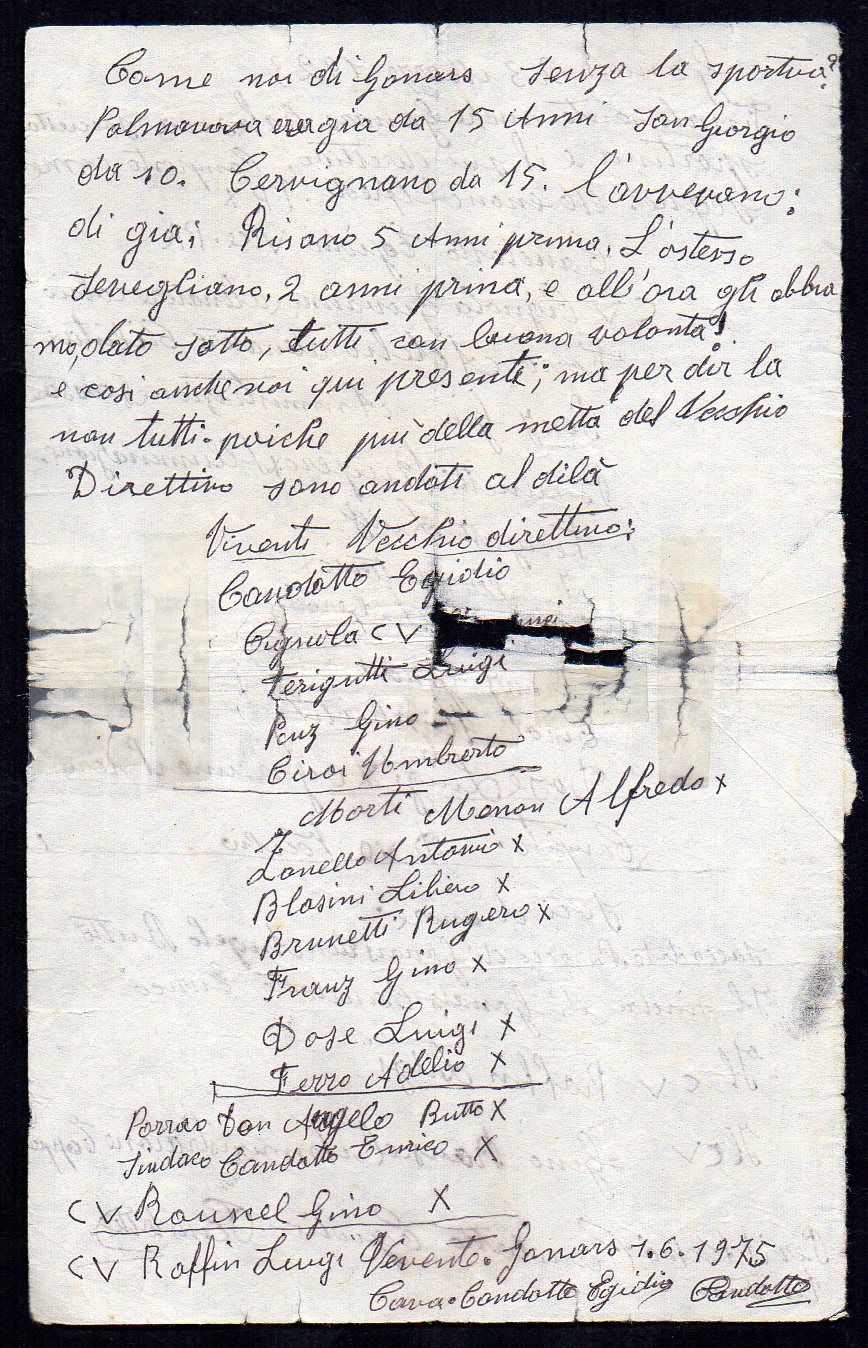 Come noi di Gonars senza la sportiva?
Palmanova era gia da 15 Anni San Giorgio
da 10. Cervignano da 15. l'avvevano:
di gia; Risano 5 Anni prima. L'ostesso
Sevegliano, 2 anni prima, e all'ora gli abbia
mo, dato sotto, tutti con buona volontà!
e cosi anche noi qui presenti; ma per dir la
non tutti. poiche più della metta del Vecchio
Direttivo sono andati al dilà
Viventi Vecchio direttivo:
Candotto Egidio
Cignola CV
Ferigutti Luigi
Penz Gino
Ciroi Umberto
Morti Menon Alfredo x
Zanello Antonio x
Blasini Libero x
Brunetti Rugero x
Franz Gino x
Dose Luigi x
Ferro Adelio x
Porroco Don Angelo Butto x
Sindaco Candotto Enrico x
CV Gino x
CV Raffin Luigi Vevente. Gonars 1.6.1975
Cava. Candotto Egidio Candotto